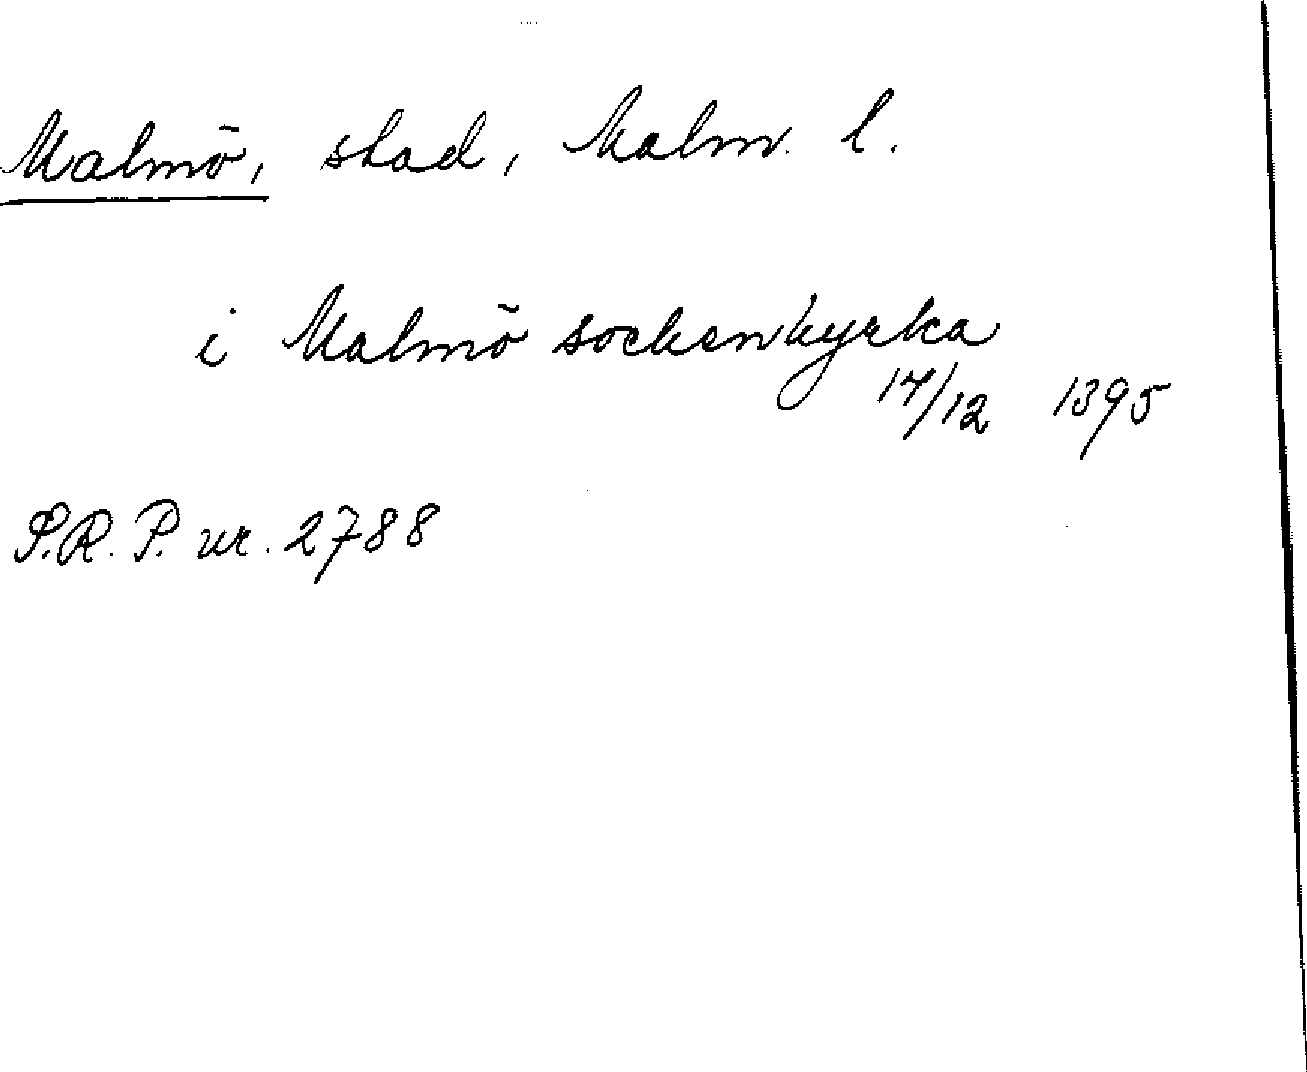 Malmö, stad, Malm. l.
i Malmö sockenkyrka
14/12 1395
S.R.P. nr. 2788